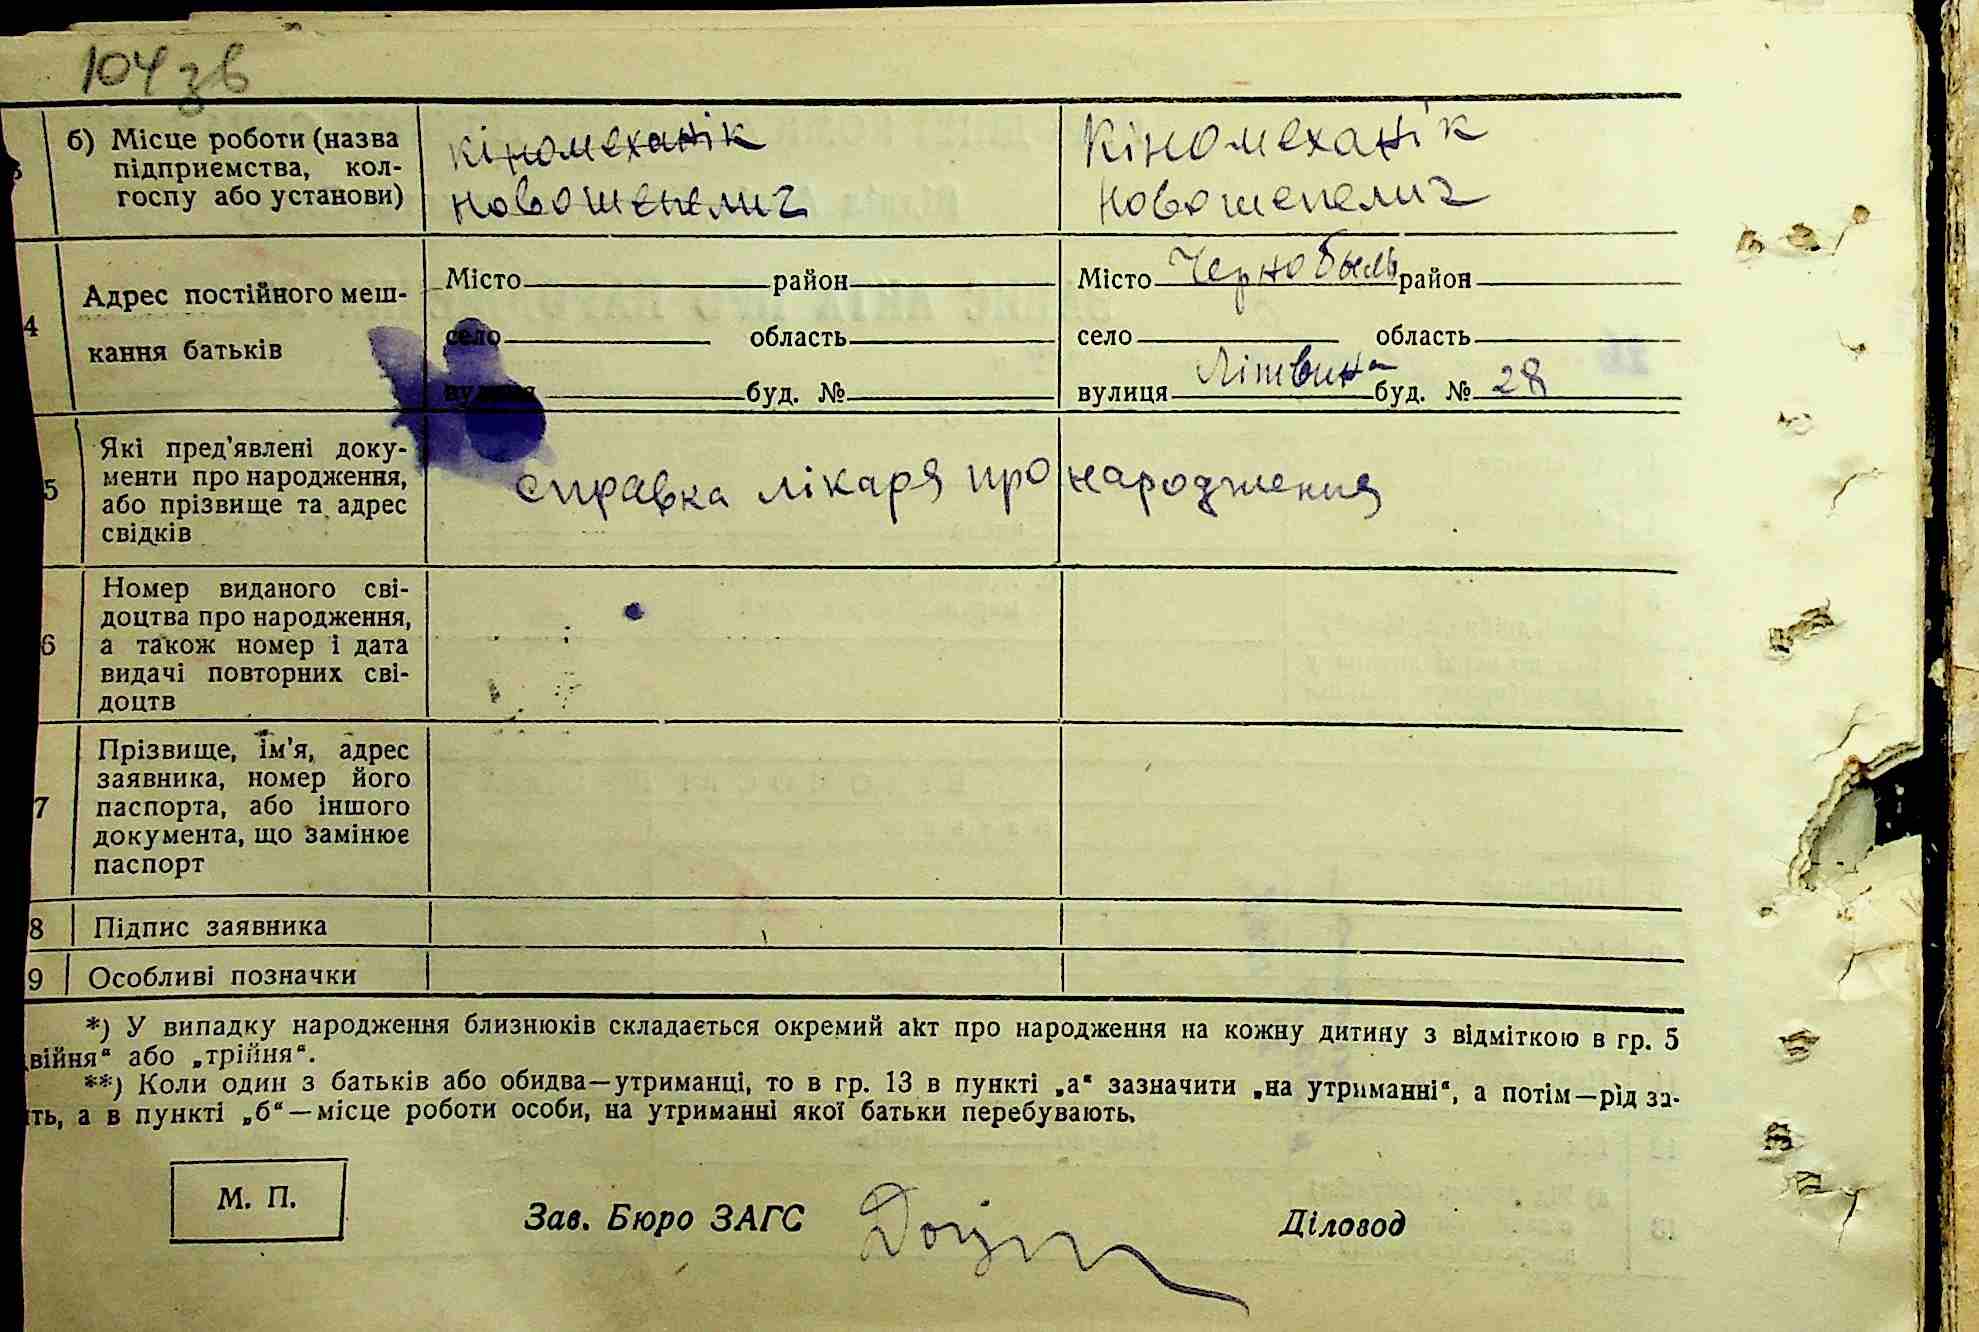 104 зв
б) Місце роботи (назва
підприємства, кол-
госпу або установи)
кіномеханік
новошепелич
Кіномеханік
новошепелич
4
Адрес постійного меш-
кання батьків
Місто район
село область
вулиця буд. №
Місто Чернобыль район
село область
вулиця Літвина буд. № 28
5
Які пред'явлені доку-
менти про народження,
або прізвище та адрес
свідків
справка лікаря про народження
6
Номер виданого сві-
доцтва про народження,
а також номер і дата
видачі повторних сві-
доцтв
7
Прізвище, ім'я, адрес
заявника, номер його
паспорта, або іншого
документа, що замінює
паспорт
8 Підпис заявника
9 Особливі позначки
*) У випадку народження близнюків складається окремий акт про народження на кожну дитину з відміткою в гр. 5
війня“ або „трійня“.
**) Коли один з батьків або обидва—утриманці, то в гр. 13 в пункті „а“ зазначити „на утриманні“, а потім—рід за-
ть, а в пункті „б“—місце роботи особи, на утриманні якої батьки перебувають.
М. П.
Зав. Бюро ЗАГС
Діловод